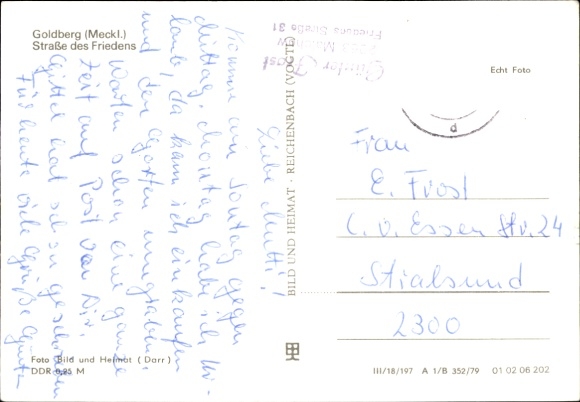 Goldberg (Meckl.)
Straße des Friedens
Günter Frost
Friedens Straße 31
Liebe Mutti!
Komme am Sontag gegen
Mittag, Montag habe ich Ur-
laub, da kann ich einkaufen
und den Garten umgraben.
Warten schon eine ganze
Zeit auf Post von Dir.
Gittel hat schon geschrieben
Für heute viele Grüße Günter
BILD UND HEIMAT · REICHENBACH (VOGTL)
Echt Foto
Frau
E. Frost
C. v. Essen Str. 24
Stralsund
2300
Foto Bild und Heimat (Darr)
DDR 0,25 M
III/18/197 A 1/B 352/79 01 02 06 202